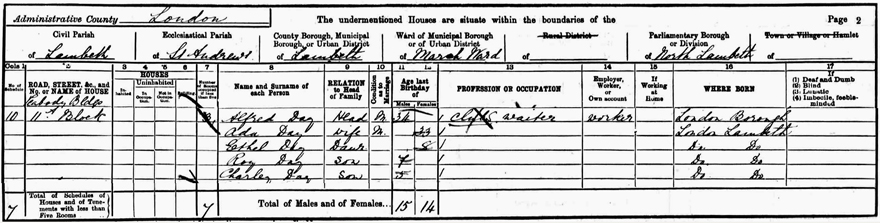 Administrative County London The undermentioned Houses are situate within the boundaries of the Page 2
Civil Parish Ecclesiastical Parish County Borough, Municipal Borough, or Urban District Ward of Municipal Borough or of Urban District Rural District Parliamentary Borough or Division Town or Village or Hamlet
of Lambeth of St Andrews of Lambeth of Marsh Ward of of North Lambeth of
Cols 1 2 3 4 5 6 7 8 9 10 11 12 13 14 15 16 17
No. of Schedule ROAD, STREET, &c., and No. or NAME of HOUSE HOUSES Inhabited Uninhabited In Occupation Not in Occupation Building Name and Surname of each Person RELATION to Head of Family Condition as to Marriage Age last Birthday of Males Females PROFESSION OR OCCUPATION Employer, Worker, or Own account If Working at Home WHERE BORN If (1) Deaf and Dumb (2) Blind (3) Lunatic (4) Imbecile, feeble-minded
Peabody Bldgs
10 11th Block Alfred Day Head M 34 waiter worker London Borough
Ada Day wife M 33 London Lambeth
Ethel Day Daur 8 Do Do
Roy Day son 7 Do Do
Charley Day son 5 Do Do
7 Total of Schedules of Houses and of Tenements with less than Five Rooms 7 Total of Males and of Females... 15 14